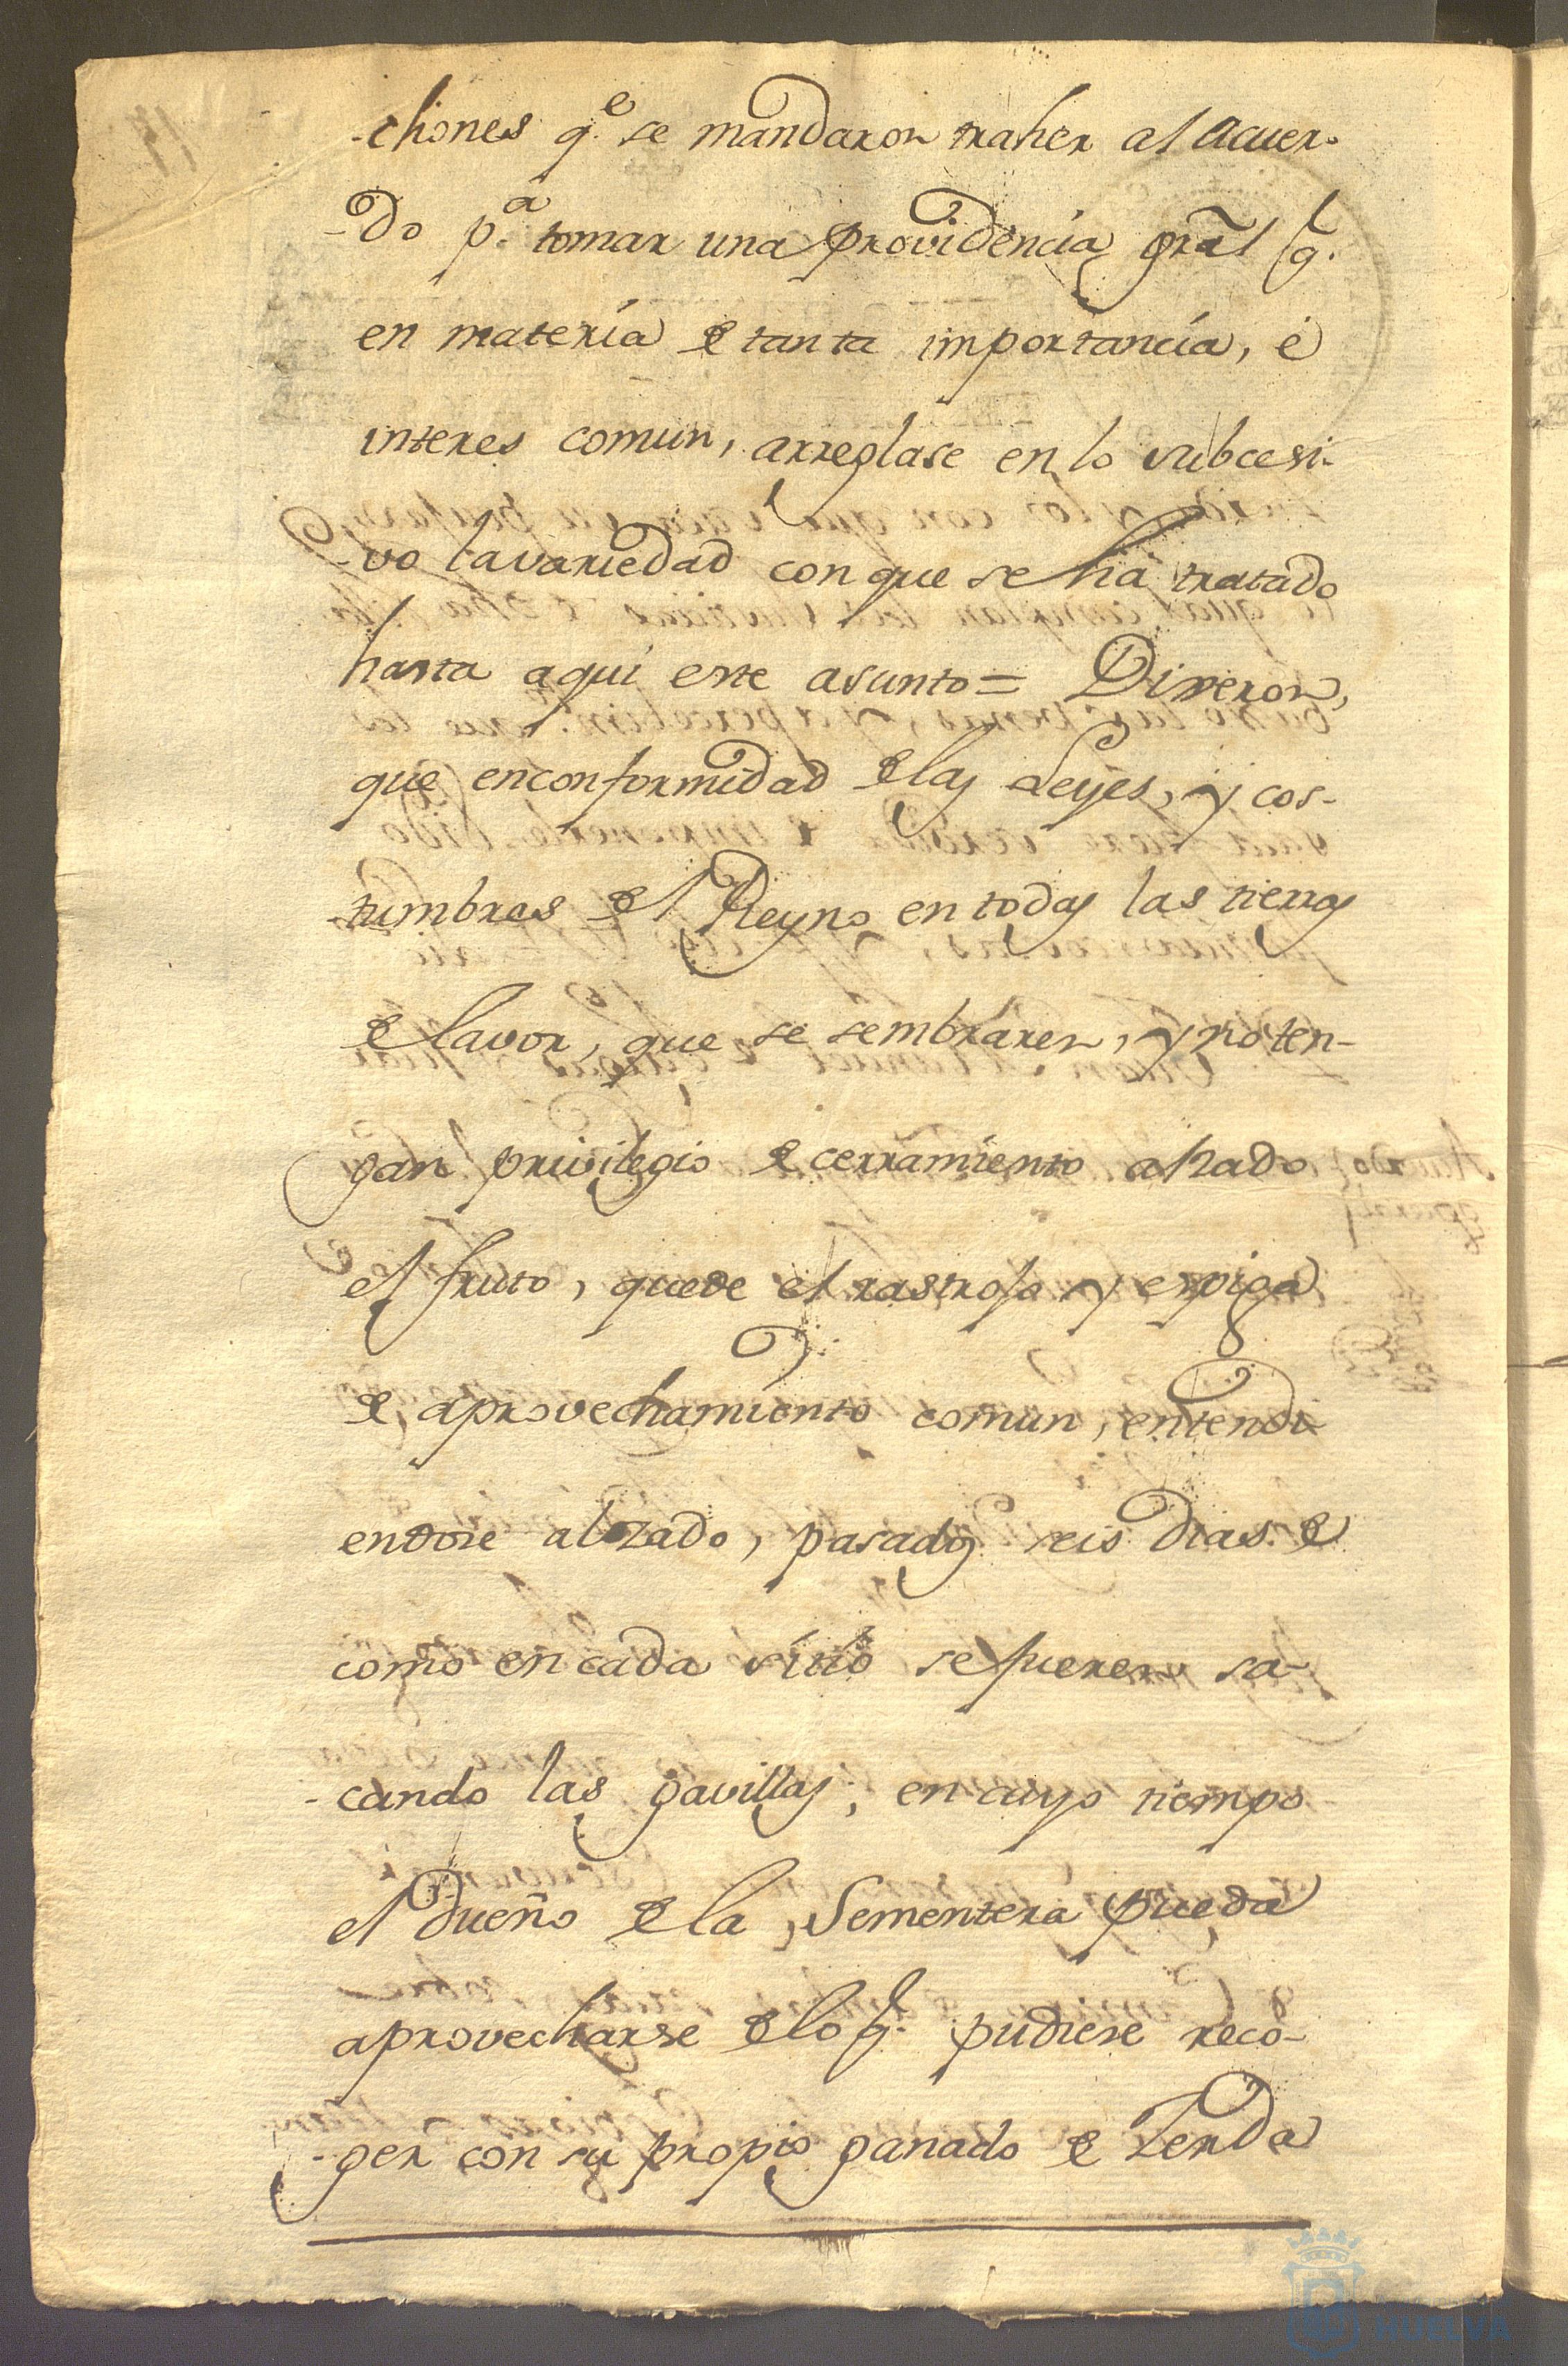 -chiones q.e se mandaron traher al acuer-
-do p.a tomar una providencia gral q.
en matería de tanta importancía, é
interes comun, arreglase en lo subcesi-
-vo lavariedad con que se há tratado
hasta aqui este asunto = Dixeron,
que enconformidad delas Leyes, y cos-
-tumbres del Reyno en todas las tierras
de lavor, que se sembráren, y no ten-
gan privilegio de cerramiento alzado
el fruto, quede el rastrojo y espiga
de aprovechamiento comun, entendi
endose alzado, pasados seis dias de
como en cada sitio sefueren sa-
-cando las gavillas, en cuyo tiempo
el dueño dela Sementera pueda
aprovecharse delo q. pudiese reco-
-ger con su propio ganado de Zerda
HUELVA